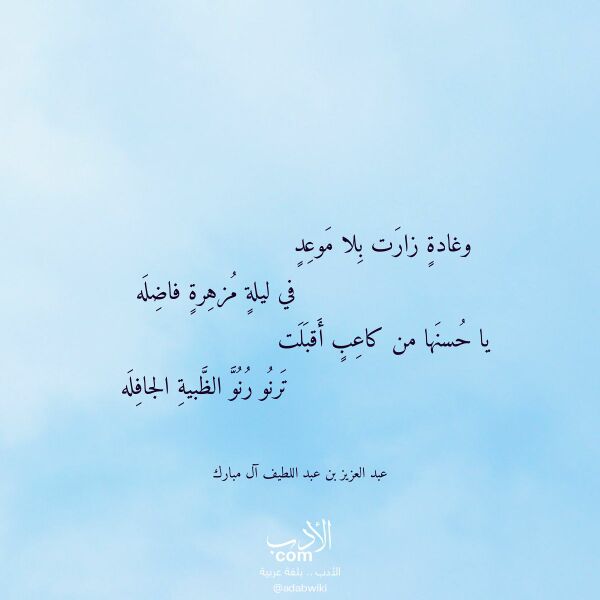 وغادةٍ زارَت بِلا مَوعِدٍ
في ليلةٍ مُزهِرةٍ فاضِلَه
يا حُسنَها من كاعِبٍ أَقبَلَت
تَرنُو رُنُوَّ الظَّبيةِ الجافِلَه
عبد العزيز بن عبد اللطيف آل مبارك
الأدب
.com
الأدب .. بلغة عربية
@adabwiki